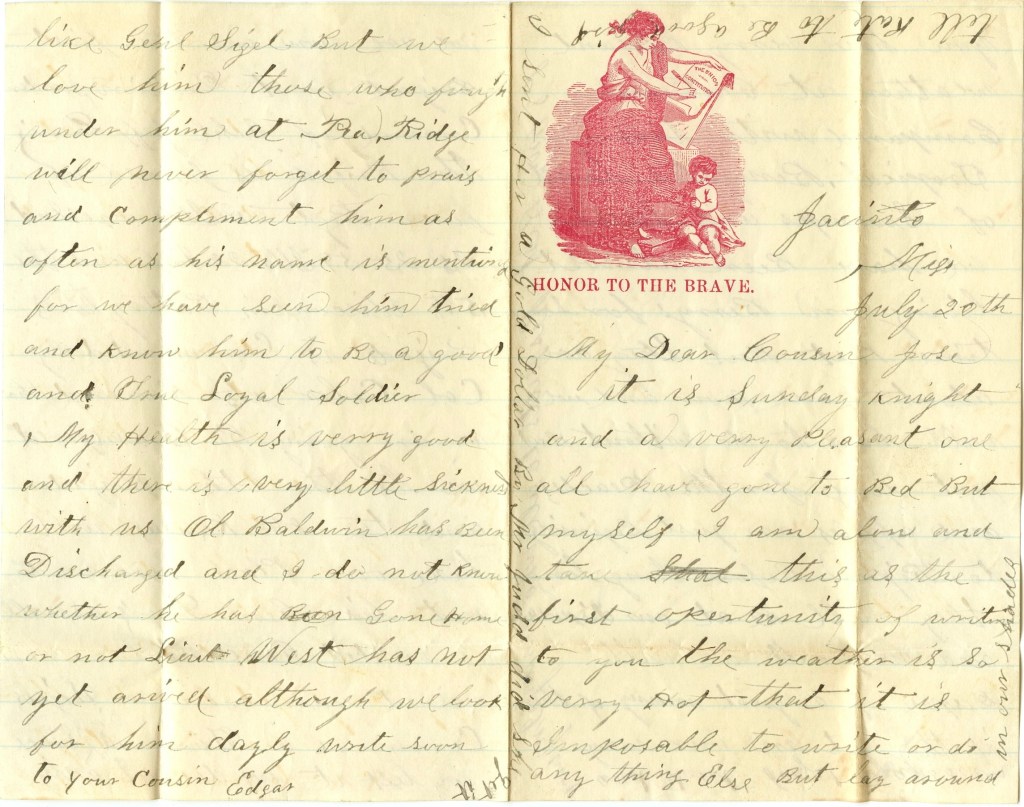 like Genl Sigel But we
love him those who fough
under him at Pea Ridge
will never forget to prais
and Compliment him as
often as his name is mention
for we have seen him tried
and know him to Be a good
and True Loyal Soldier
, My Health is verry good
and there is very little Sickness
with us Ol Baldwin has Been
Discharged and I do not Know
whether he has Been Gone Home
or not Lieut West has not
yet arived although we look
for him dayly write soon
to your Cousin Edgar
tell Kate to Be a good
I Sent Her a Gold Dollar By Mr Judd did she
get it
THE UNION
CONSTITUTION
HONOR TO THE BRAVE.
Jacinto
, Miss
July 20th
My Dear Cousin Jose
it is Sunday Knight
and a verry Pleasant one
all have gone to Bed But
myself I am alon and
take this as the
first opertunity of writin
to you the weather is so
verry Hot that it is
Imposable to write or do
any thing Else But lay around
in our shades